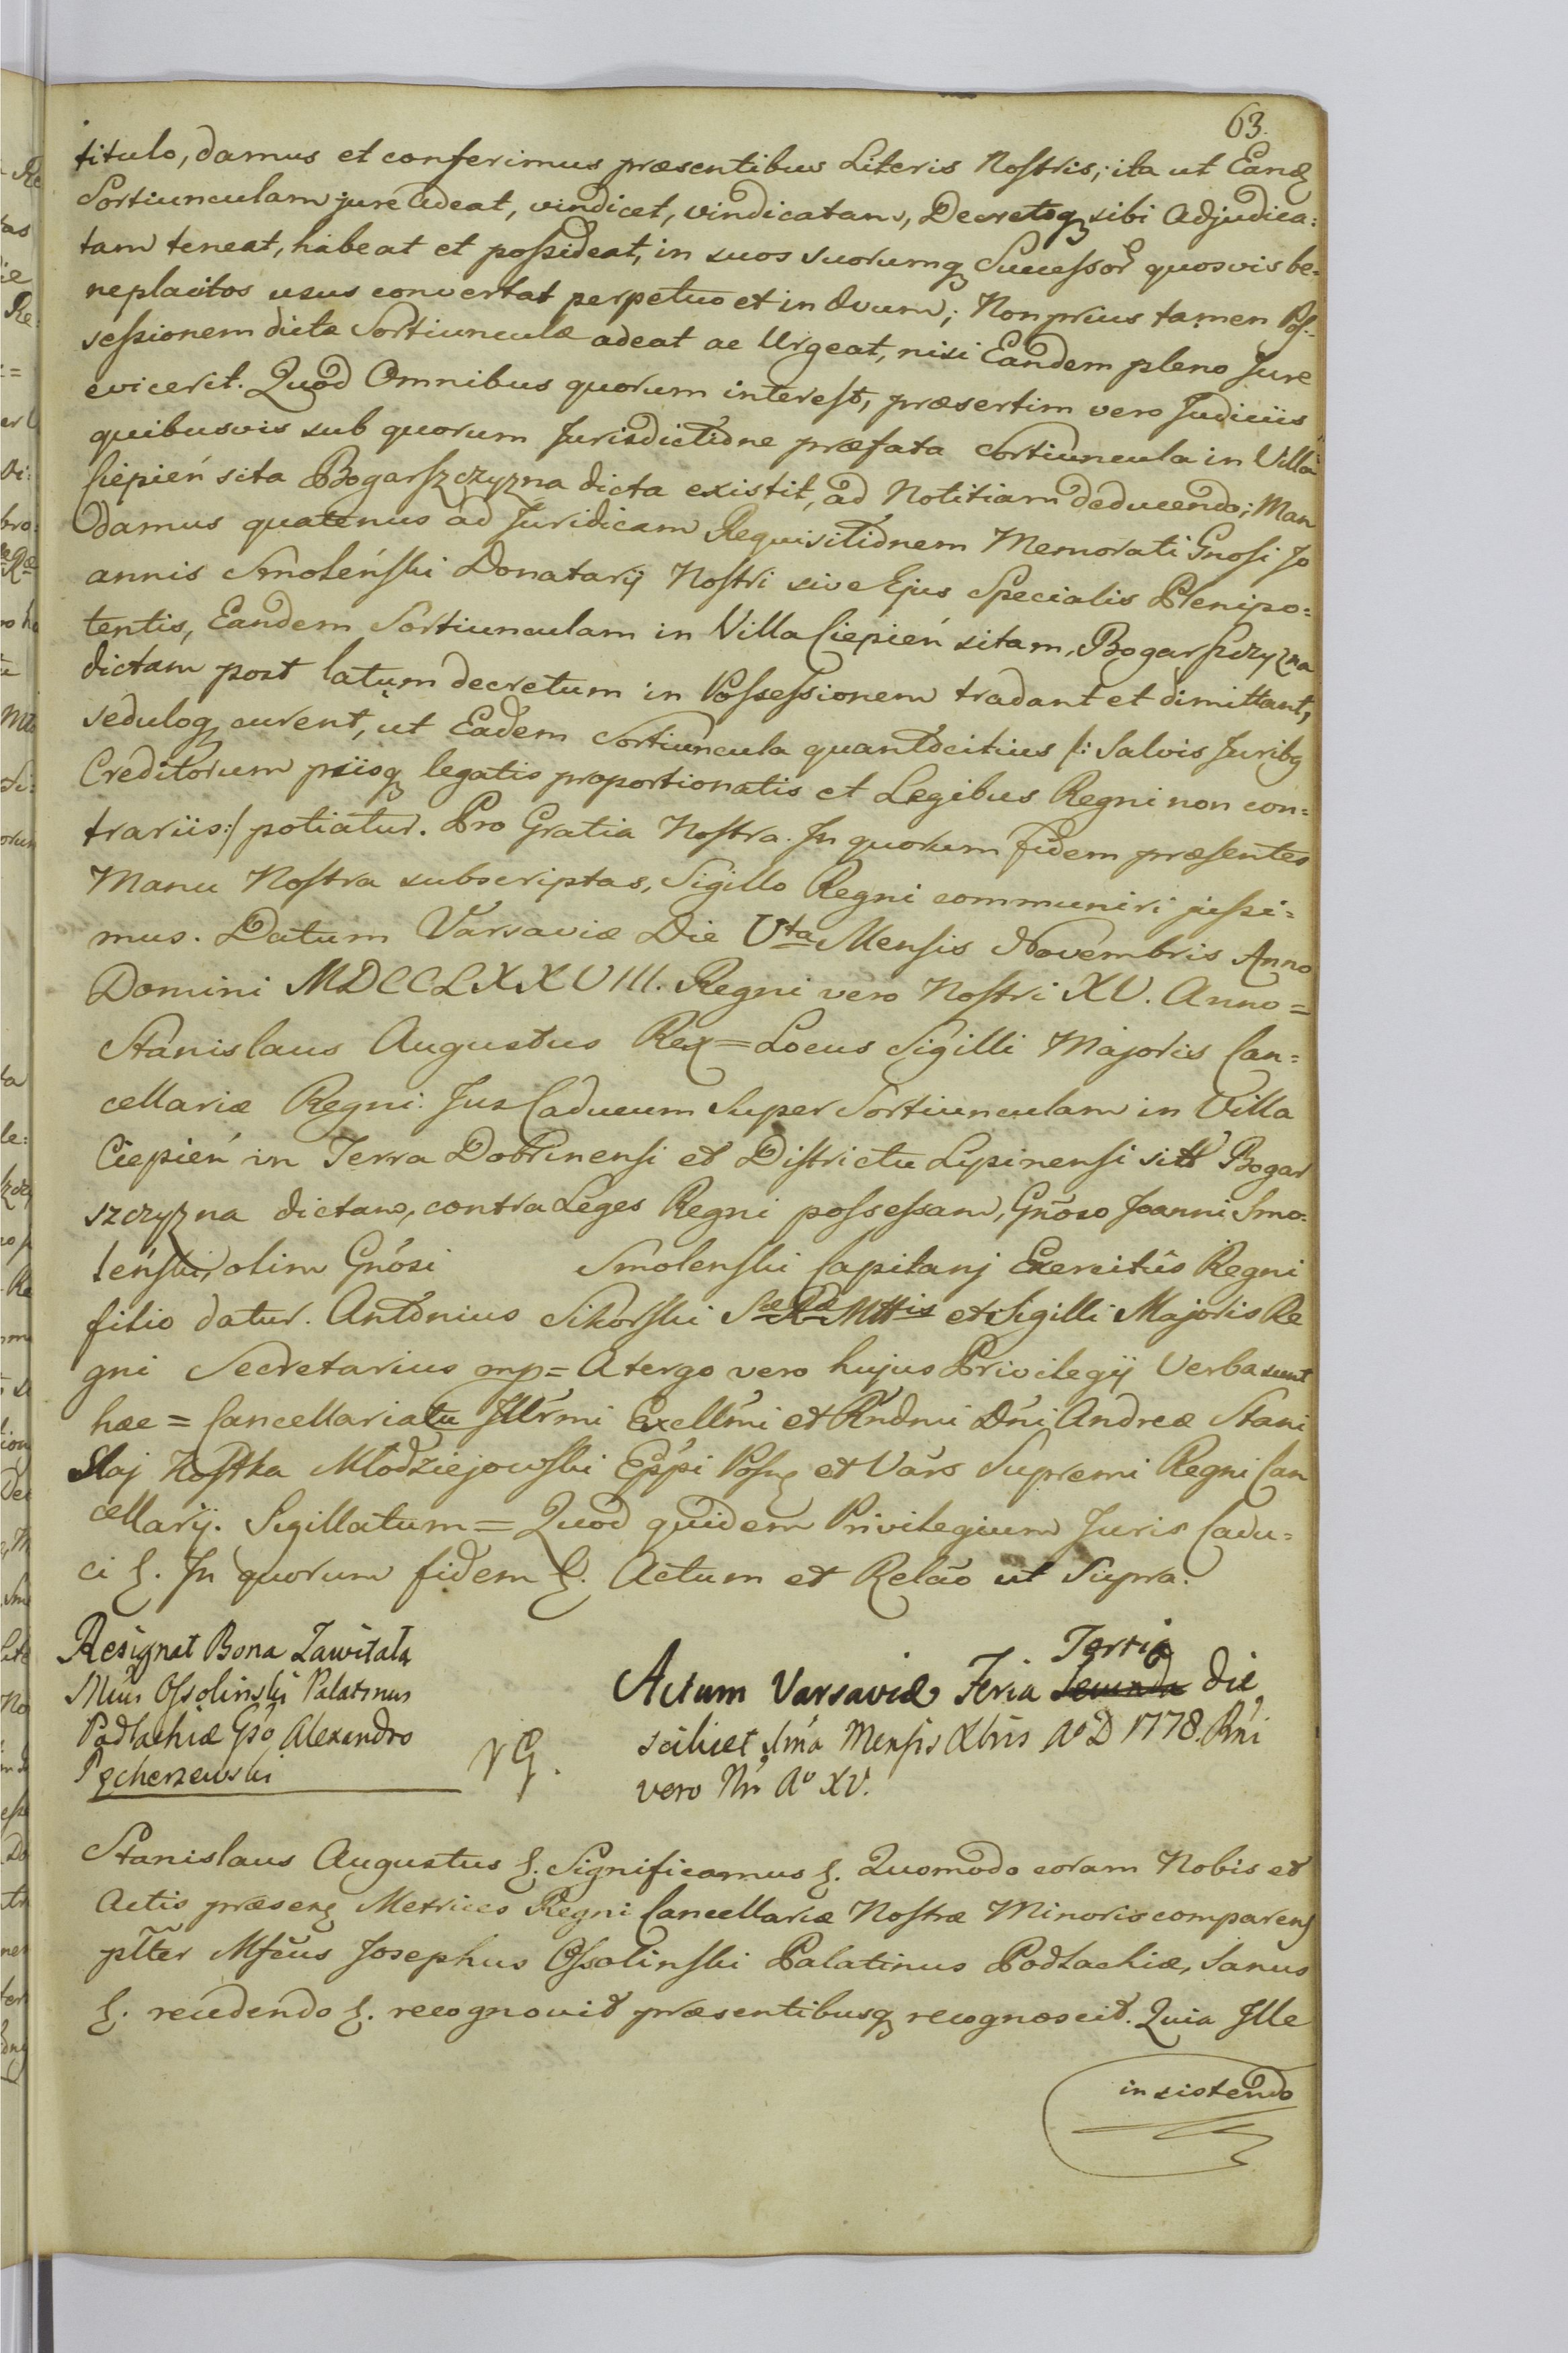 63.
titulo, damus et conferimus præsentibus Literis Nostris; ita ut Eandȝ
Sortiunculam jure adeat, vindicet, vindicatam, Decretoqȝ sibi Adjudica:
tam teneat, habeat et possideat, in suos suorumqȝ Successor̃ quosvis be-
neplacitos usus convertat perpetuo et in ævum; Non prius tamen Pos-
sessionem dictæ Sortiunculæ adeat ac Urgeat, nisi Eandem pleno Jure
evicerit. Quod Omnibus quorum interest, præsertim vero Judiciis
quibusvis sub quorum Jurisdictione præfata Sortiuncula in Villa
Ciepień sita Bogarszczyzna dicta existit, ad Notitiam deducendo; Man
damus quatenus ad Juridicam Requisitionem Memorati Gnosi Jo
annis Smoleński Donatarij Nostri sive Ejus Specialis Plenipo:
tentis, Eandem Sortiunculam in Villa Ciepień sitam, Bogarszczyzna
dictam post latum decretum in Possessionem tradant et dimittant,
seduloqȝ curent, ut Eadem Sortiuncula quantocitius /: Salvis Juribȝ
Creditorum piisqȝ legatis proportionatis et Legibus Regni non con=
trariis:/ potiatur. Pro Gratia Nostra. In quorum fidem præsentes
Manu Nostra subscriptas, Sigillo Regni communiri jussi=
mus. Datum Varsaviæ Die Vta Mensis Novembris Anno
Domini MDCCLXXVIII. Regni vero Nostri XV. Anno=
Stanislaus Augustus Rex = Locus Sigilli Majoris Can=
cellariæ Regni. Jus Caducum Super Sortiunculam in Villa
Ciepień in Terra Dobrinensi et Districtu Lipinensi sitt Bogar
szczyzna dictam, contra Leges Regni possessam, Gñoso Joanni Smo:
leński, olim Gñosi Smolenski Capitanj Exercitûs Regni
filio datur. Antonius Sikorski Sæ Ræ Mttis et Sigilli Majoris Re
gni Secretarius mp = Atergo vero hujus Privilegij Verba sunt
hæc = Cancellariatu Illr̃mi Excellm̃i et Rñdmi Dñi Andreæ Stani
slaj Kostka Młodziejowski Epp̃i Posnȝ et Vars Supremi Regni Can
cellarij. Sigillatum = Quod quidem Privilegium Juris Cadu=
ci ȝ. In quorum fidem ȝ. Actum et Relão ut Supra.
Resignat Bona Zawitala
Mcũs Ossolinski Palatinus
Podlachiæ Gso Alexandro
Pęcherzewski
Actum Varsaviæ Feria Tertia Secunda die
scilicet Imã Mensis Xbris Aº D 1778. Rñi
vero Nri Aº XV.
Stanislaus Augustus ȝ. Significamus ȝ. Quomodo coram Nobis et
Actis præsenȝ Metrices Regni Cancellariæ Nostræ Minoris comparens
pltẽr Mfcũs Josephus Ossolinski Palatinus Podlachiæ, Sanus
ȝ. recedendo ȝ. recognovit præsentibusqȝ recognoscit. Quia Ille
insistendo